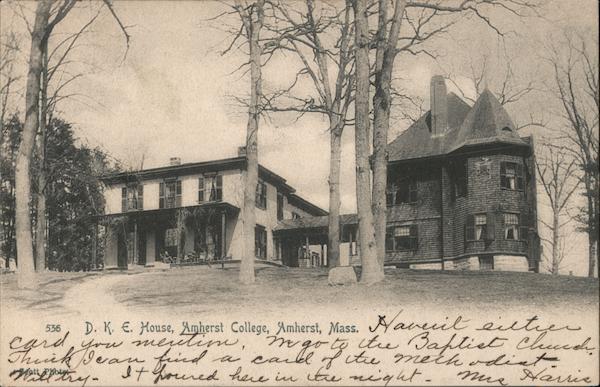 536 D. K. E. House, Amherst College, Amherst, Mass. Haven't either
card you mention. We go to the Baptist Church.
Think I can find a card of the Methodist
Will try - It poured here in the night - Mrs Harris
Scott Photo.